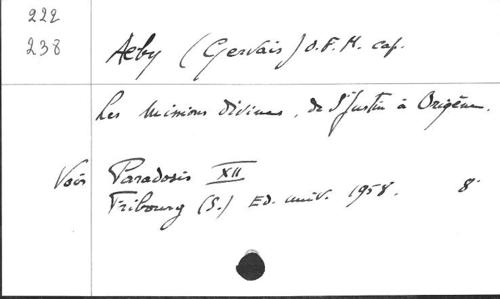 222
238
Aeby (Gervais) O.F.M. cap.
Les Missions divines, de St Justin à Origène.
Voir Paradosis XII
Fribourg (S.) Ed. univ. 1958. 8°